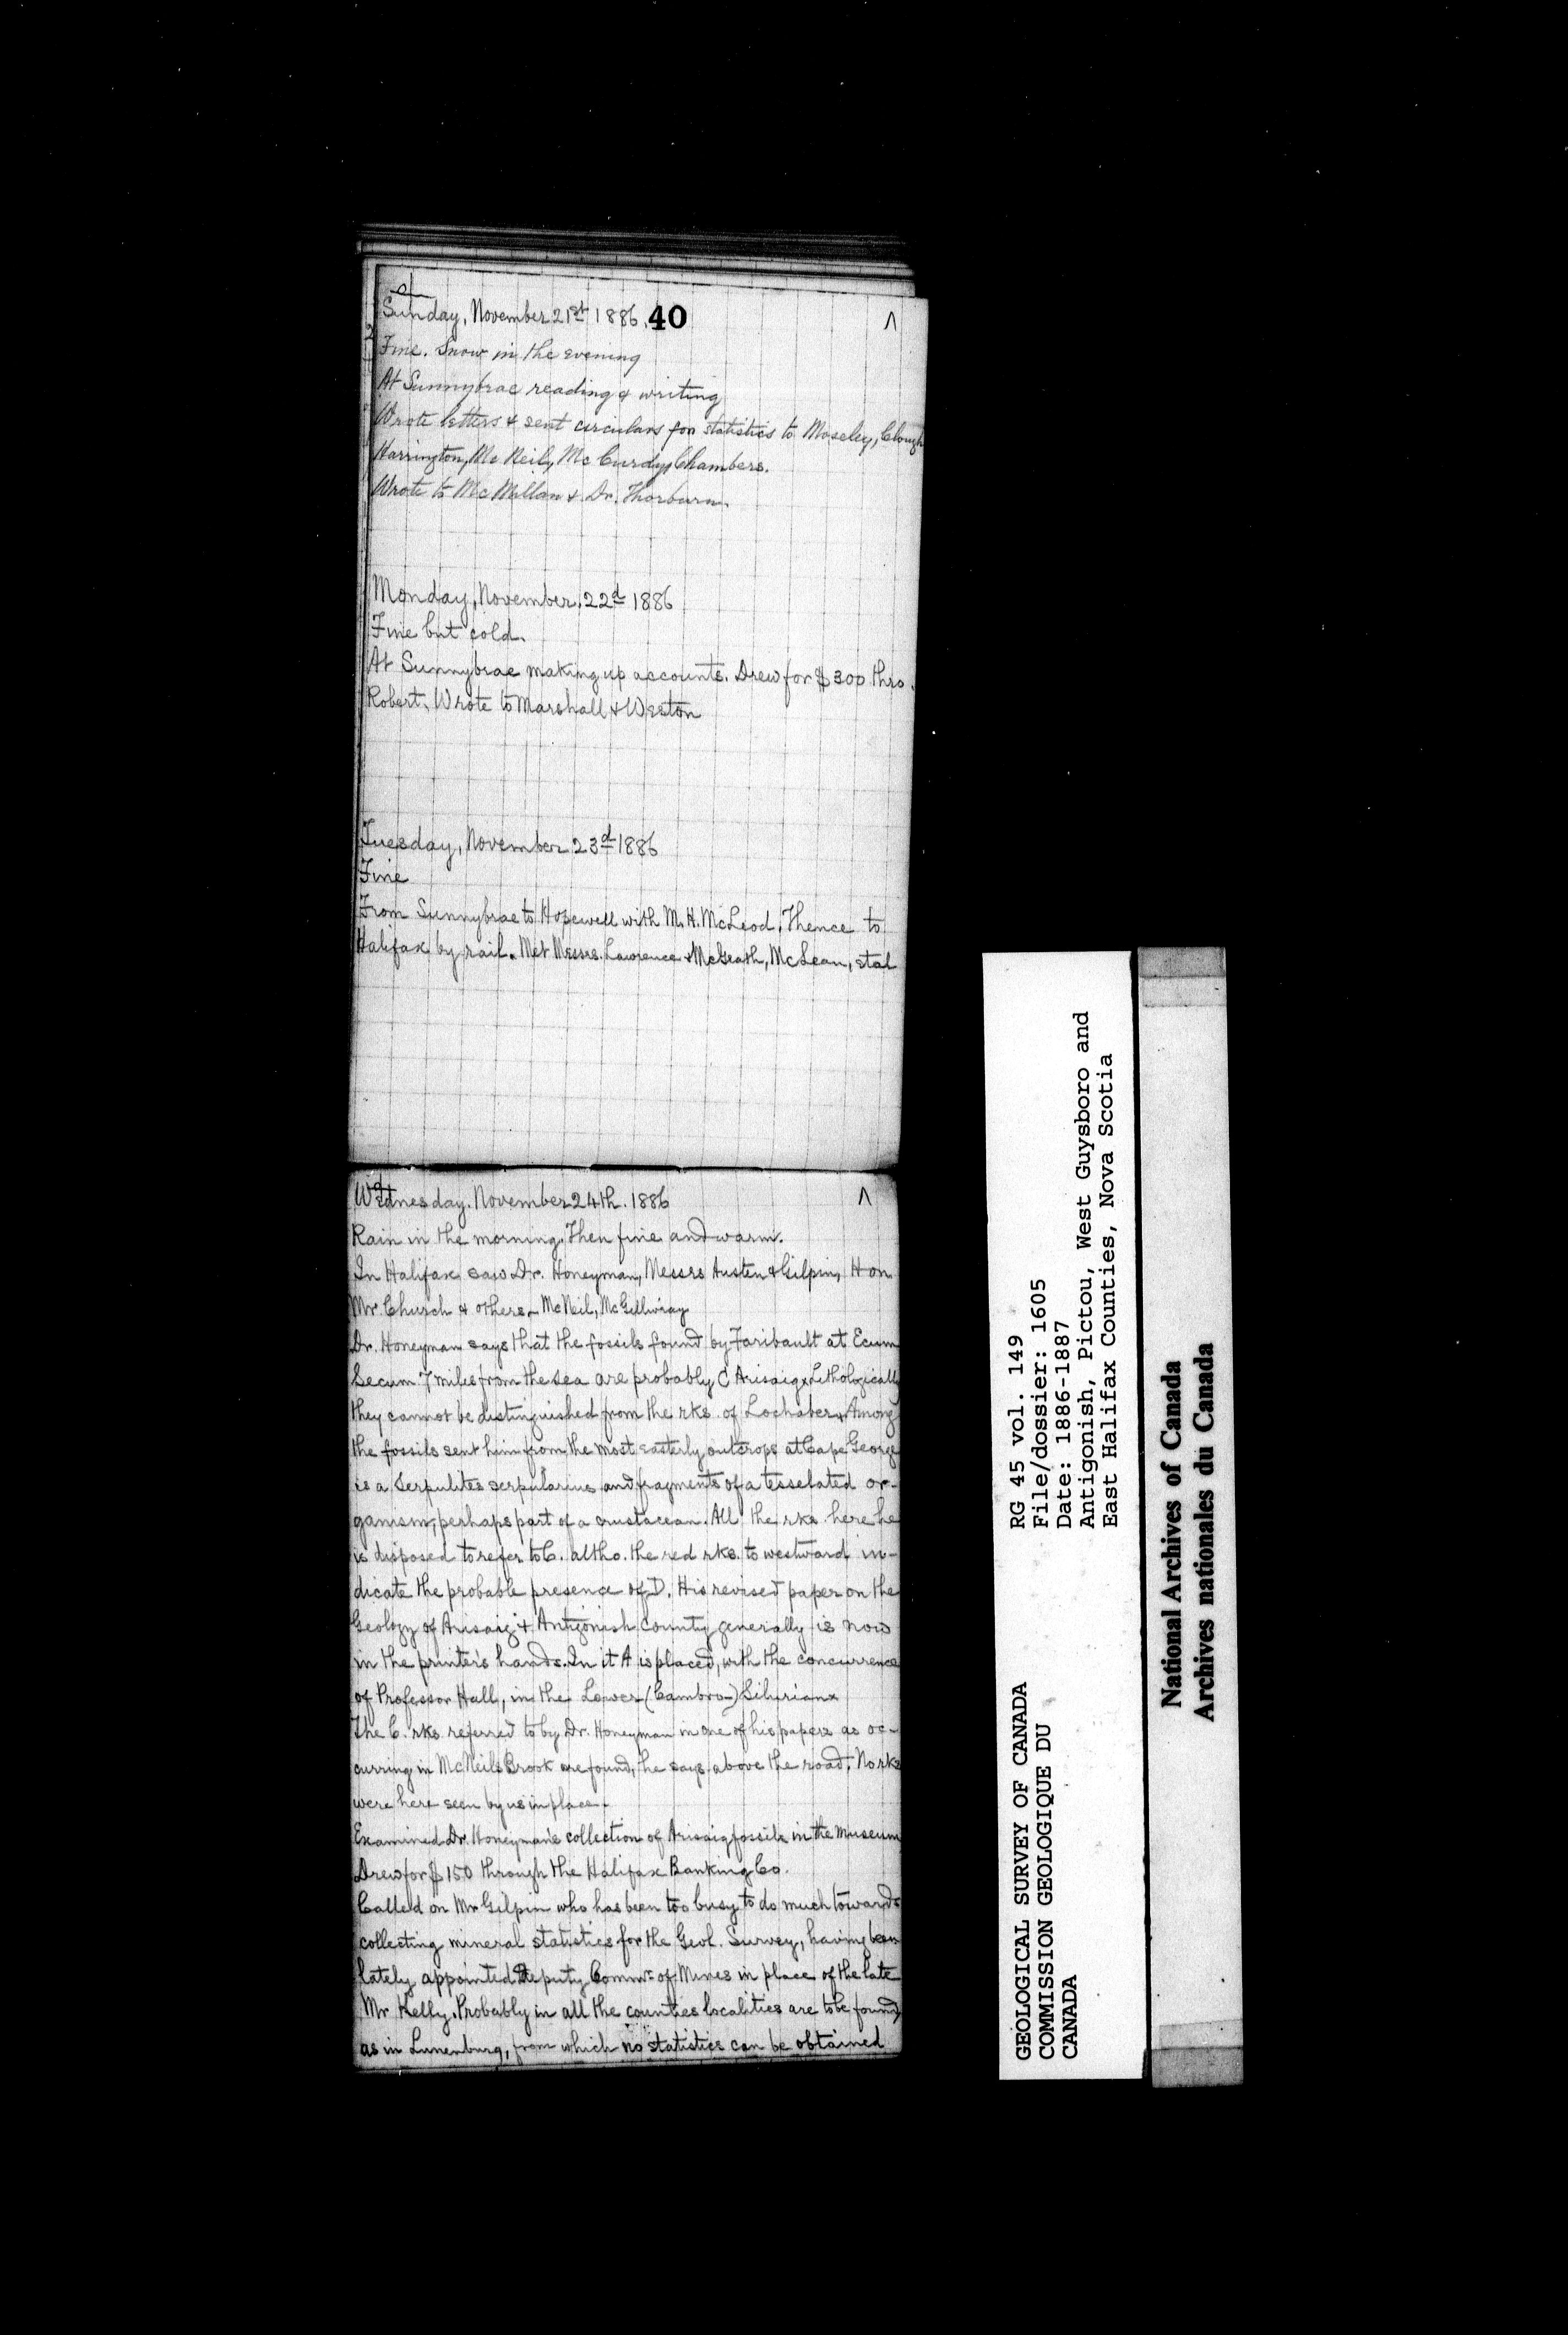 Sunday, November 21st 1886. 40
Fine. Snow in the evening
At Sunnybrae reading & writing
Wrote letters & sent circulars for statistics to Moseley, Clough
Harrington, Mc Neil, Mc Curdy, Chambers.
Wrote to McMillan & Dr. Thorburn.
Monday, November, 22d 1886
Fine but cold.
At Sunnybrae making up accounts. Drew for $300 thro.
Robert. Wrote to Marshall & Weston
Tuesday, November 23d 1886
Fine
From Sunnybrae to Hopewell with M. H. McLeod. Thence to
Halifax by rail. Met Messrs. Lawrence & McGrath, McLean, et al
Wednesday. November 24th. 1886
Rain in the morning. Then fine and warm.
In Halifax saw Dr. Honeyman, Messrs Austen & Gilpin, Hon
Mr. Church & others. McNeil, McGillivray
Dr. Honeyman says that the fossils found by Faribault at Ecum
Secum 7 miles from the sea are probably C Arisaig. Lithologically
they cannot be distinguished from the rks. of Lochaber. Among
the fossils sent him from the most easterly outcrops at Cape George
is a Serpulites serpularius and fragments of a tesselated or-
ganism, perhaps part of a crustacean. All the rks. here he
is disposed to refer to C. altho. the red rks. to westward in-
dicate the probable presence of D. His revised paper on the
Geology of Arisaig & Antigonish county generally is now
in the printer's hands. In it A is placed, with the concurrence
of Professor Hall, in the Lower (Cambro-) Silurian
The C. rks. referred to by Dr. Honeyman in one of his papers as oc-
curring in McNeils Brook are found, he says above the road. No rks
were here seen by us in place.
Examined Dr. Honeyman's collection of Arisaig fossils in the museum
Drew for $150 through the Halifax Banking Co.
Called on Mr Gilpin who has been too busy to do much towards
collecting mineral statistics for the Geol. Survey, having been
lately appointed Deputy Commr. of Mines in place of the late
Mr Kelly. Probably in all the counties localities are to be found,
as in Lunenburg, from which no statistics can be obtained
GEOLOGICAL SURVEY OF CANADA
COMMISSION GEOLOGIQUE DU
CANADA
RG 45 vol. 149
File/dossier: 1605
Date: 1886-1887
Antigonish, Pictou, West Guysboro and
East Halifax Counties, Nova Scotia
National Archives of Canada
Archives nationales du Canada